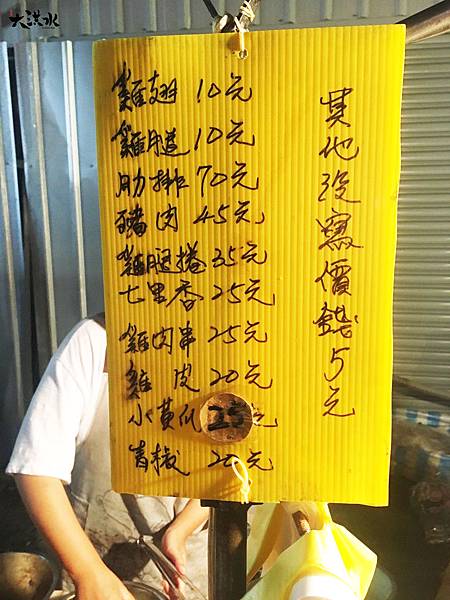 大洪水
雞翅 10元
雞腿 10元
肋排 70元
豬肉 45元
雞腿捲 35元
七里香 25元
雞肉串 25元
雞皮 20元
小黃瓜 25元
青椒 20元
其他沒寫價錢5元